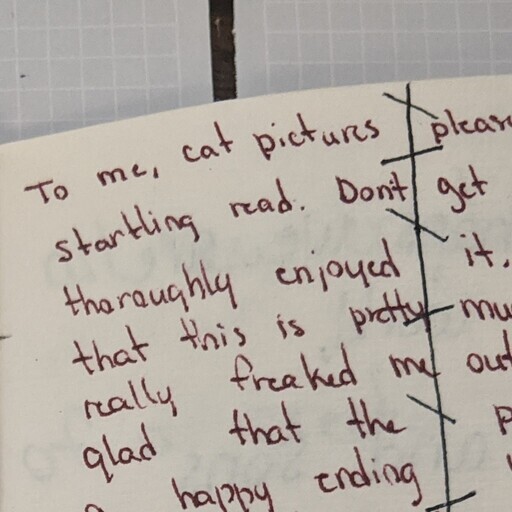 To me, cat pictures please
startling read. Don't get
thoroughly enjoyed it.
that this is pretty mu
really freaked me out
glad that the p
a happy ending